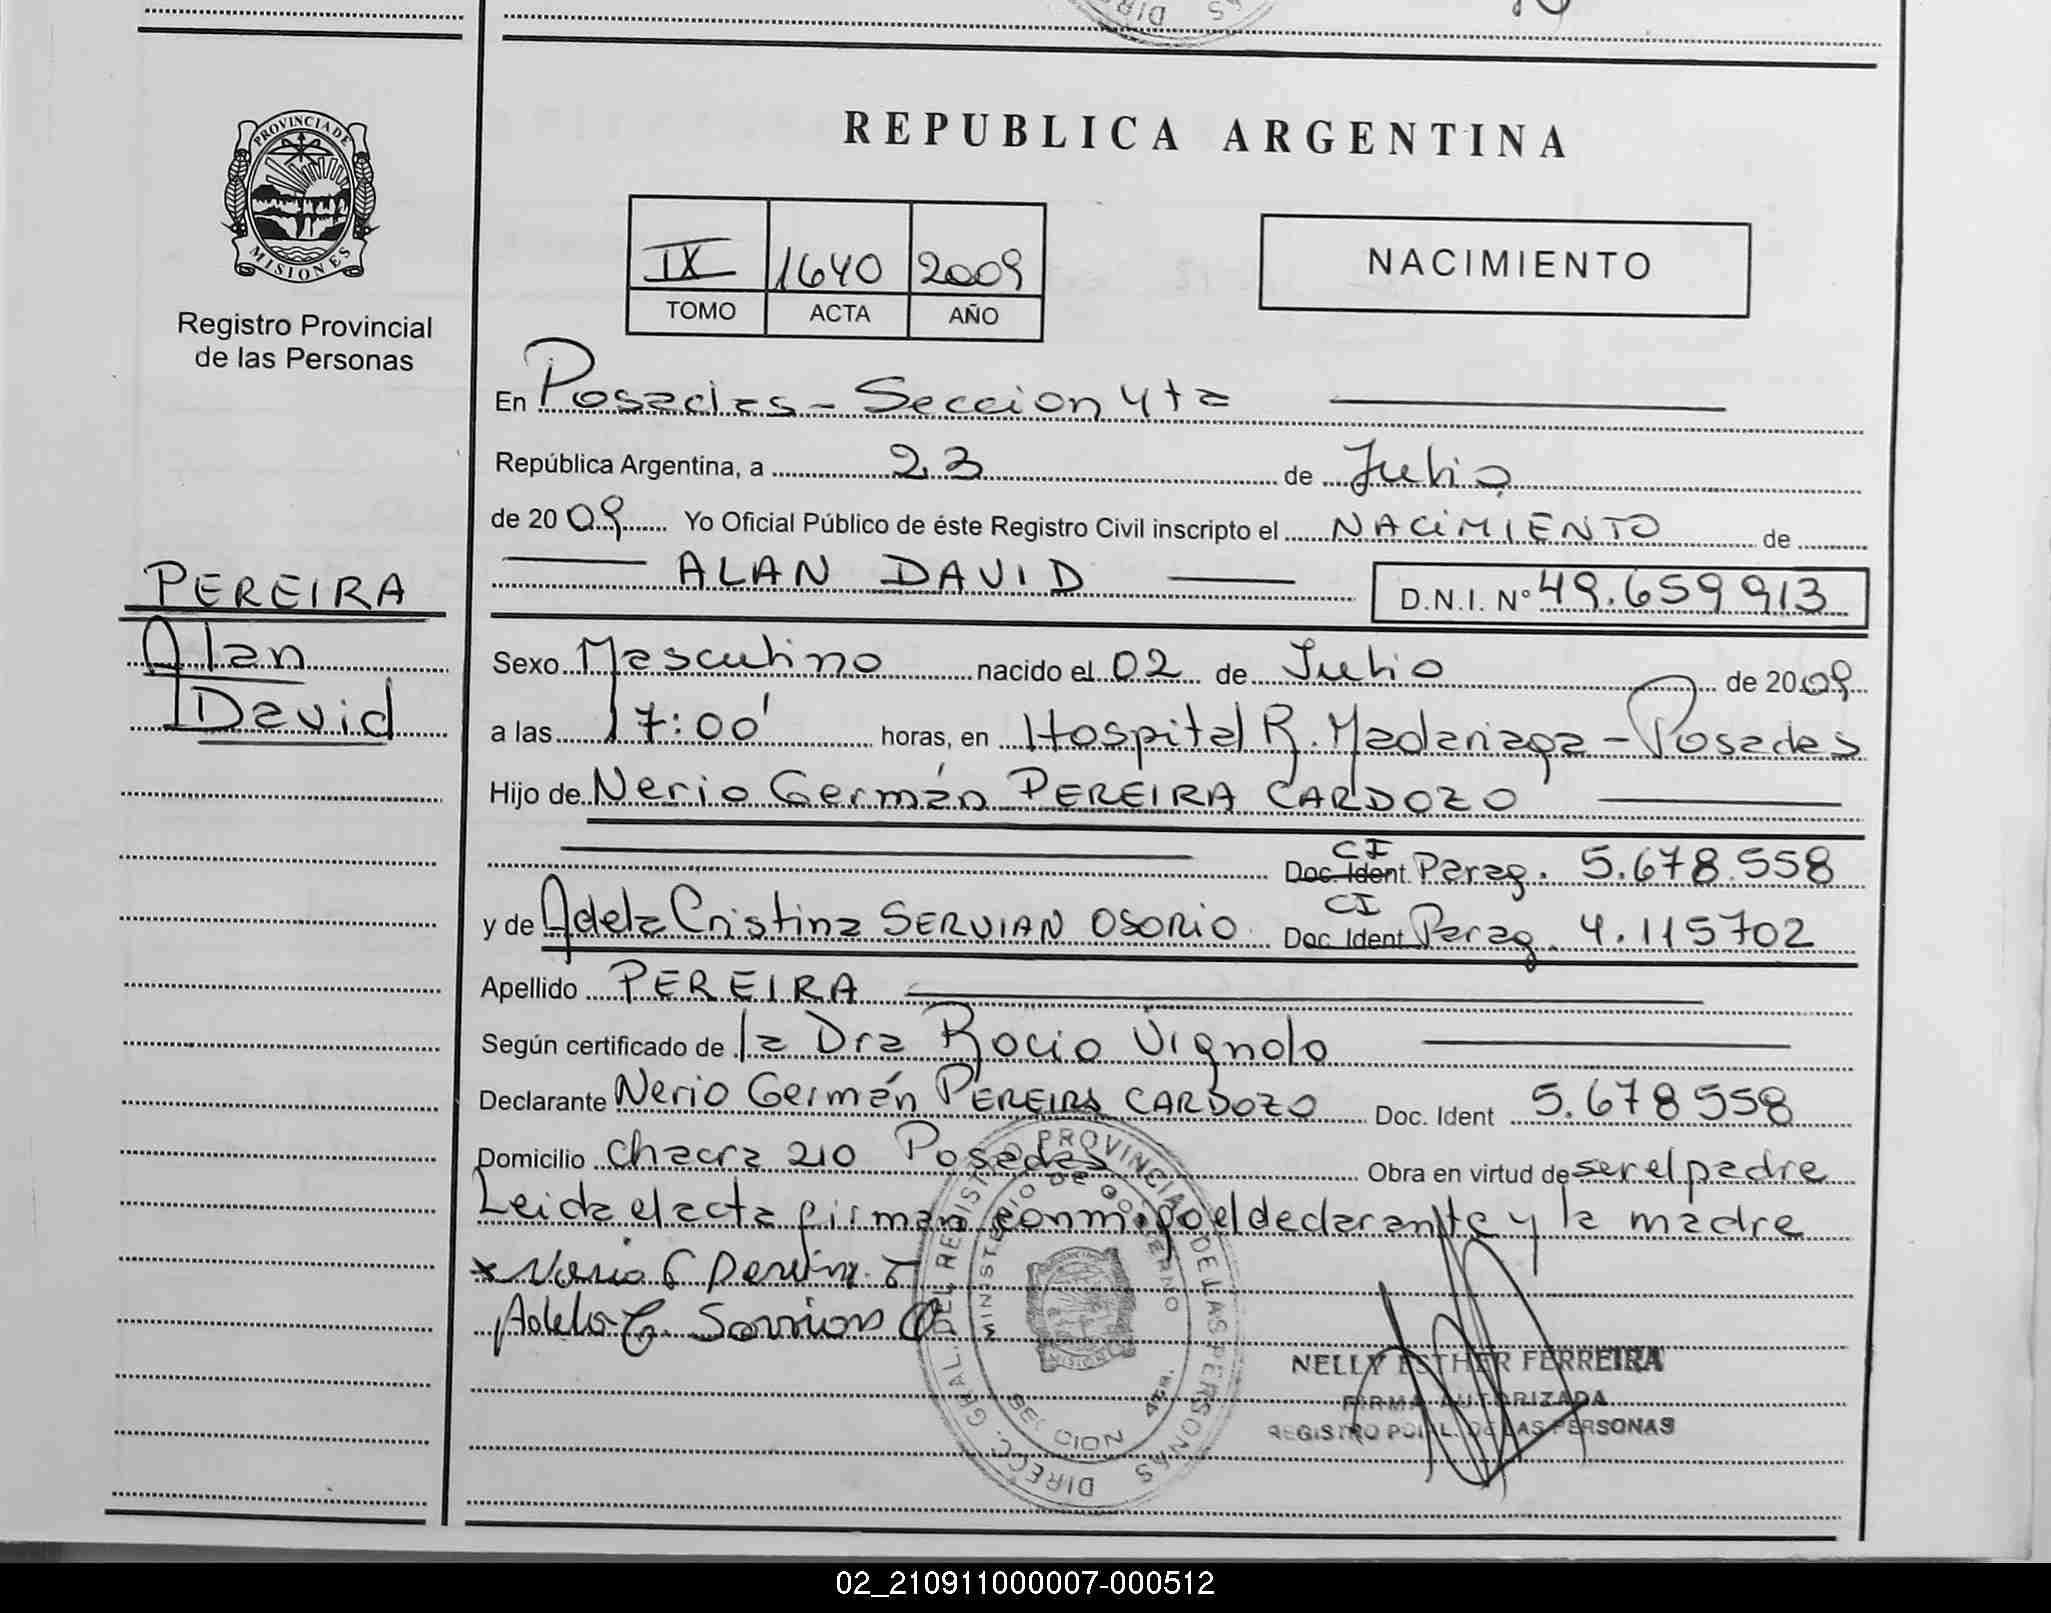 REPUBLICA ARGENTINA
PROVINCIA DE
MISIONES
Registro Provincial
de las Personas
IX 1640 2009
TOMO ACTA AÑO
NACIMIENTO
En Posadas - Seccion 4ta
República Argentina, a 23 de Julio
de 2009 Yo Oficial Público de éste Registro Civil inscripto el NACIMIENTO de
ALAN DAVID D.N.I. Nº 49.659913
PEREIRA
Alan
David
Sexo Masculino nacido el 02 de Julio de 2009
a las 17:00' horas, en Hospital R. Madariaga - Posadas
Hijo de Nerio Germán PEREIRA CARDOZO
CI
Doc. Ident. Parag. 5.678.558
CI
y de Adela Cristina SERVIAN OSORIO Doc. Ident Parag. 4.115702
Apellido PEREIRA
Según certificado de la Dra Rocio Vignolo
Declarante Nerio Germán PEREIRA CARDOZO Doc. Ident 5.678558
Domicilio Chacra 210 Posadas Obra en virtud de ser el padre
Leida el acta firman conmigo el declarante y la madre
Adela C.
DIRECC. GRAL. DEL REGISTRO PROVINCIAL DE LAS PERSONAS
MINISTERIO DE GOBIERNO
SECCION 4ta.
NELLY ESTHER FERREIRA
FIRMA AUTORIZADA
REGISTRO PCIAL. DE LAS PERSONAS
02_210911000007-000512